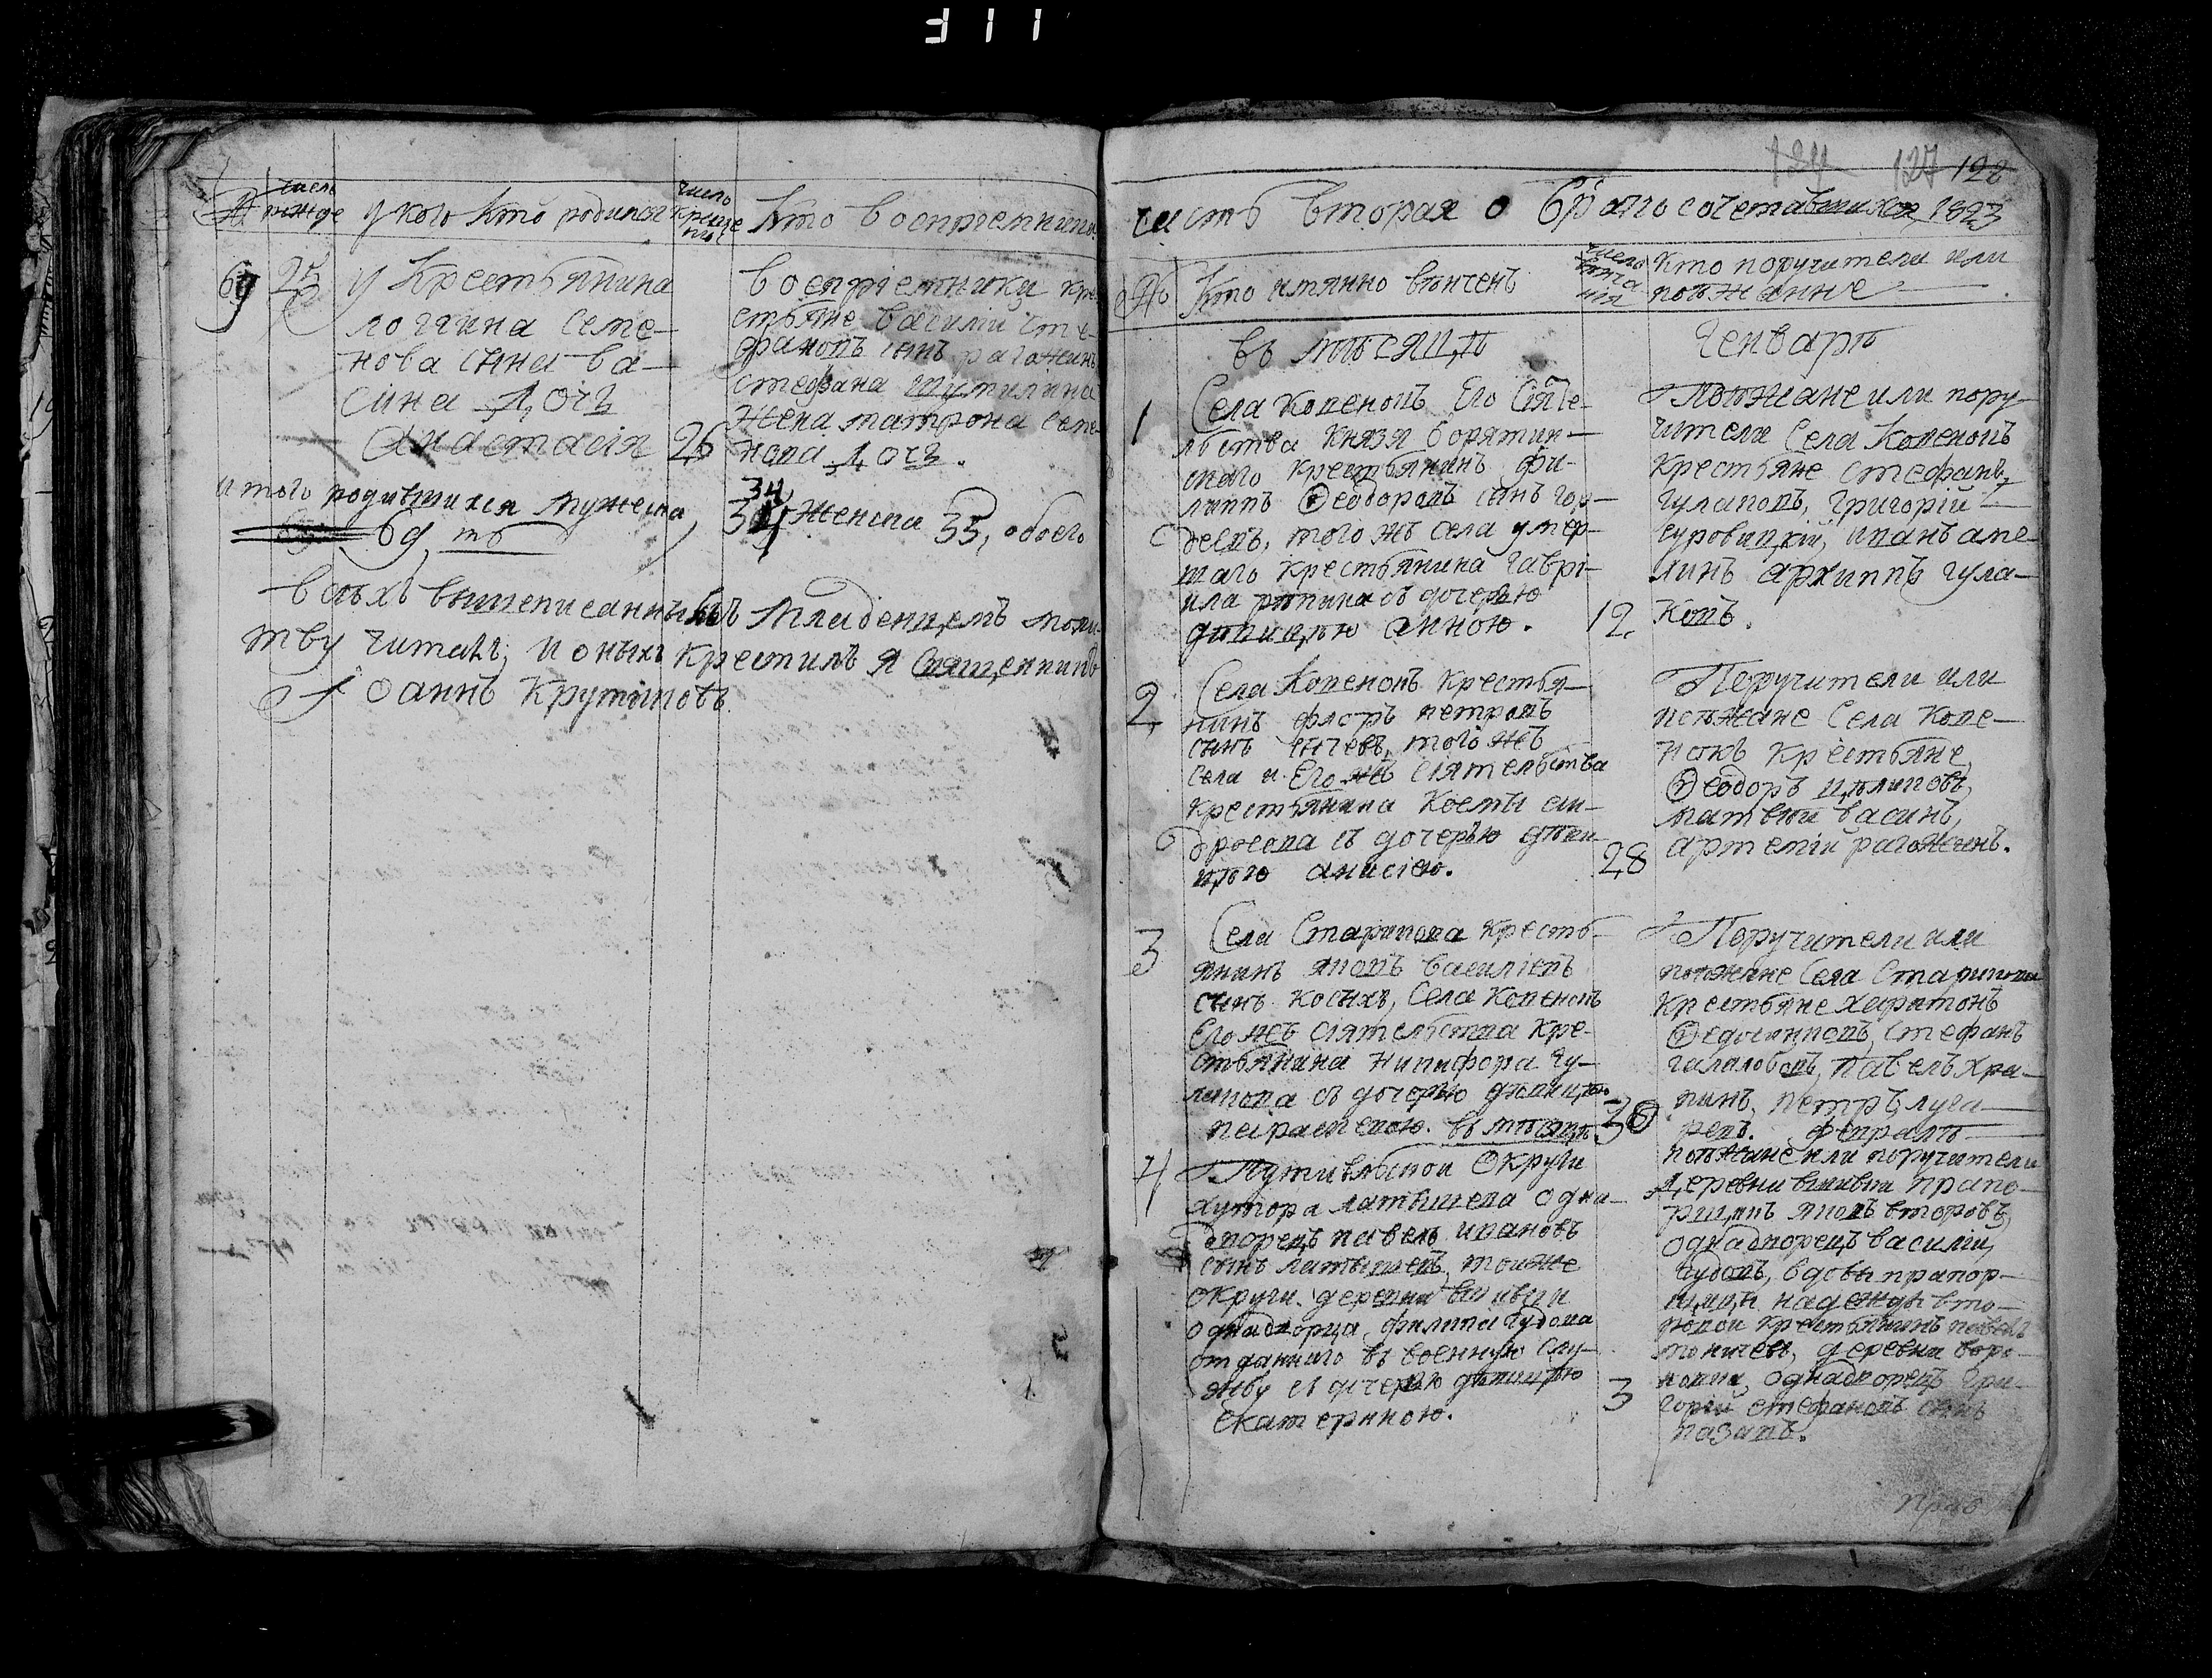 311
числ рожде
у кого кто родился
число креще нія
Кто воспріемники
69
25
у Крестьянина
логгина Семе-
нова сына ва-
сина дочь
Анастасія
26
воспріемники кре
стьяне василій сте-
фановъ сынъ рагожинъ
стефана шутилина
жена матрона семе-
нова дочь.
итого родившихся мужеска 34 женска 35, обоего
69
всѣхъ вышеписаннымъ младенцемъ моли-
тву читалъ, и оныхъ крестилъ я Священникъ
Іоаннъ Крутиковъ.
124 127 128
часть вторая о бракосочетавшихся 1823
№
Кто имянно вѣнчен
число вѣнча нія
Кто поручители или
поѣжанне
въ мѣсяцѣ
Генварѣ
1
Села Копенокъ Его Сіяте-
льства Князя борятин-
скаго крестьянинъ фи-
липпъ Ѳеодоровъ сынъ гор-
деевъ, того жъ села умер-
шаго крестьянина гаврі-
ила рѣпина съ дочерью
дѣвицѣю Анною.
12
Поѣжане или пору
чители Села Копенокъ
Крестьяне стефанъ
гулаковъ, григорій
суровицкій, иванъ аме-
линъ архиппъ гула-
ковъ.
2
Села Копенокъ крестья-
нинъ флоръ петровъ
сынъ сычевъ, того жъ
Села и Его жъ Сіятельства
крестьянина Косты си-
дросова съ дочерью дѣви
цѣю анисіею.
28
Поручители или
поѣжане Села Копе-
нокъ крестьяне,
Ѳеодоръ цыплиповъ,
матвѣй васинъ,
артемій рагожинъ.
3
Села Старикова кресть-
янинъ яковъ василіевъ
сынъ косыхъ, Села Копенокъ
Его жъ сіятельства кре-
стьянина никифора гу-
лакова съ дочерью дѣвицѣю
параскевою. въ мѣсяцѣ
30
Поручители или
поѣжане Села Старикова
крестьяне харитонъ
Ѳедосинковъ, стефанъ
галалобовъ, павелъ хра-
пинъ, петръ луга-
ревъ. февралѣ
4
Путивльской Округи
хутора латышева одно-
дворецъ павелъ ивановъ
сынъ латышевъ, тоиже
округи деревни вшивки
однадворца филипа чудова
отданнаго въ военную слу-
жбу съ дочерью дѣвицѣю
екатериною.
3
поѣжане или поручители
деревни вшивки прапо-
рщикъ яковъ второвъ,
однадворецъ василій
чудовъ, вдовы прапор-
щицы надежды вто-
ровой крестьянинъ павелъ
моничевъ, деревни воро-
новки однадворецъ гри-
горій стефановъ сынъ
казакъ.